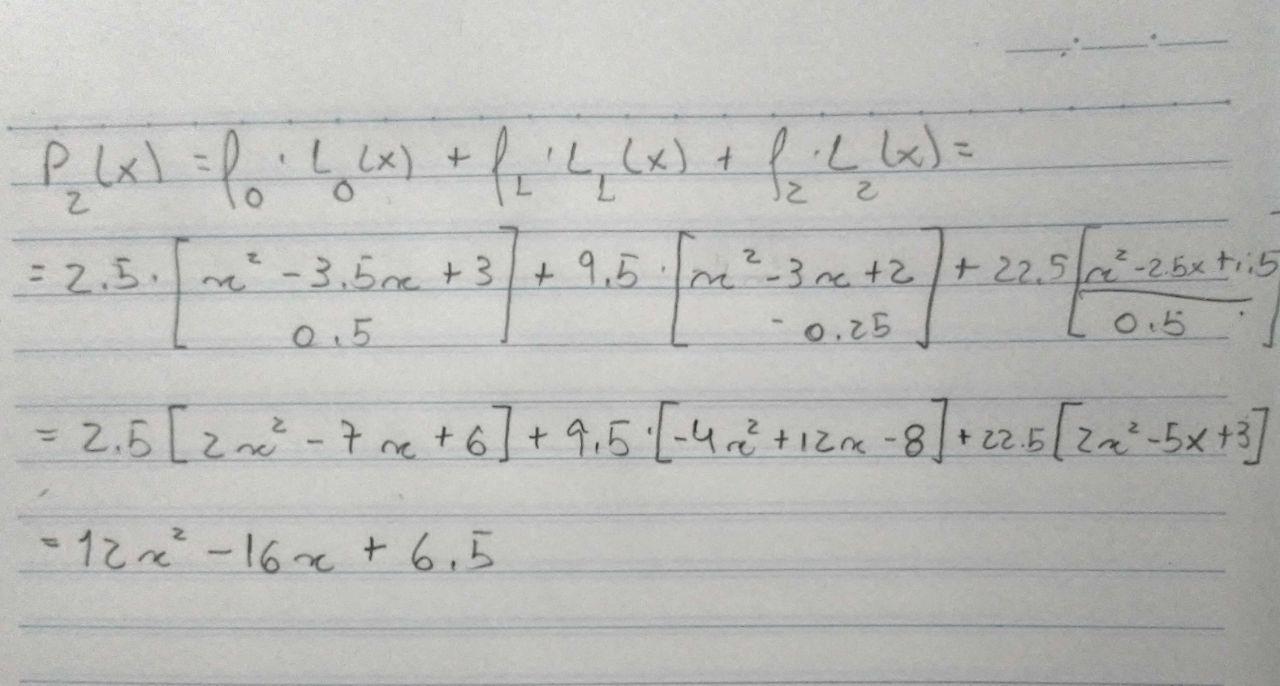 P₂(x) = f₀ · L₀(x) + f₁ · L₁(x) + f₂ · L₂(x) =
= 2.5 · [x² - 3.5x + 3 / 0.5] + 9.5 · [x² - 3x + 2 / -0.25] + 22.5 [x² - 2.5x + 1.5 / 0.5]
= 2.5 [2x² - 7x + 6] + 9.5 · [-4x² + 12x - 8] + 22.5 [2x² - 5x + 3]
= 12x² - 16x + 6.5